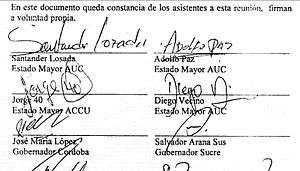 En este documento queda constancia de los asistentes a esta reunión, firman
a voluntad propia.
Santander Losada Adolfo Paz
Santander Losada Adolfo Paz
Estado Mayor AUC Estado Mayor AUC
Jorge 40 Diego V
Jorge 40 Diego Vecino
Estado Mayor ACCU Estado Mayor AUC
José María López Salvador Arana Sus
Gobernador Cordoba Gobernador Sucre